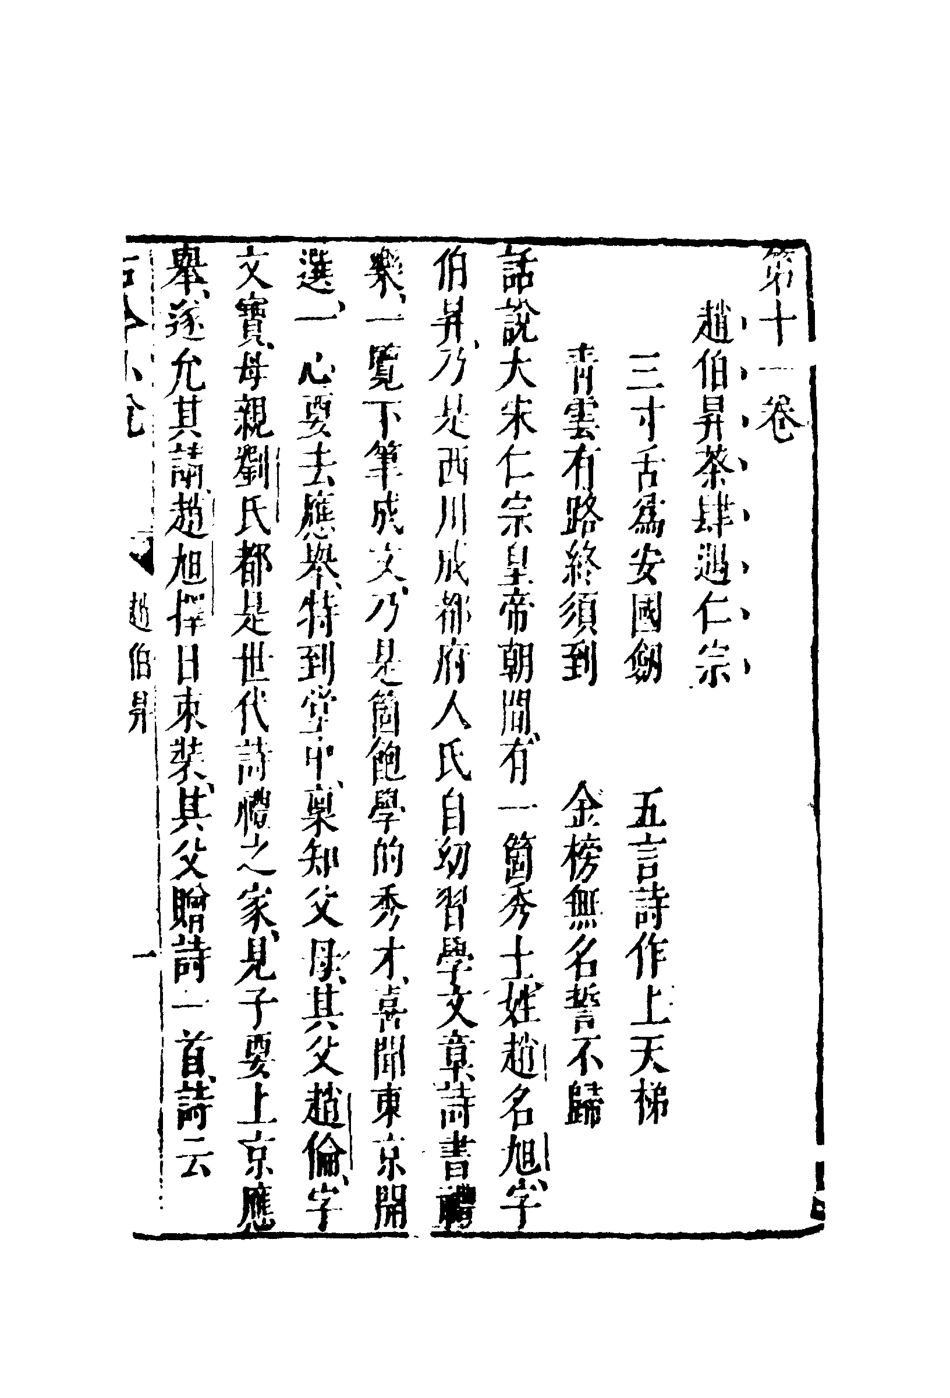 第十一卷
趙伯昇茶肆遇仁宗
三寸舌爲安國劒　五言詩作上天梯
青雲有路終須到　金榜無名誓不歸
話說大宋仁宗皇帝朝間、有一箇秀士、姓趙名旭、字
伯昇、乃是西川成都府人氏自幼習學文章詩書禮
樂、一覽下筆成文、乃是箇飽學的秀才、喜聞東京開
選、一心要去應舉、特到堂中、稟知父母、其父趙倫、字
文寶、母親劉氏都是世代詩禮之家、見子要上京應
舉、遂允其請、趙旭擇日束裝、其父贈詩一首、詩云
古今小說　趙伯昇　一